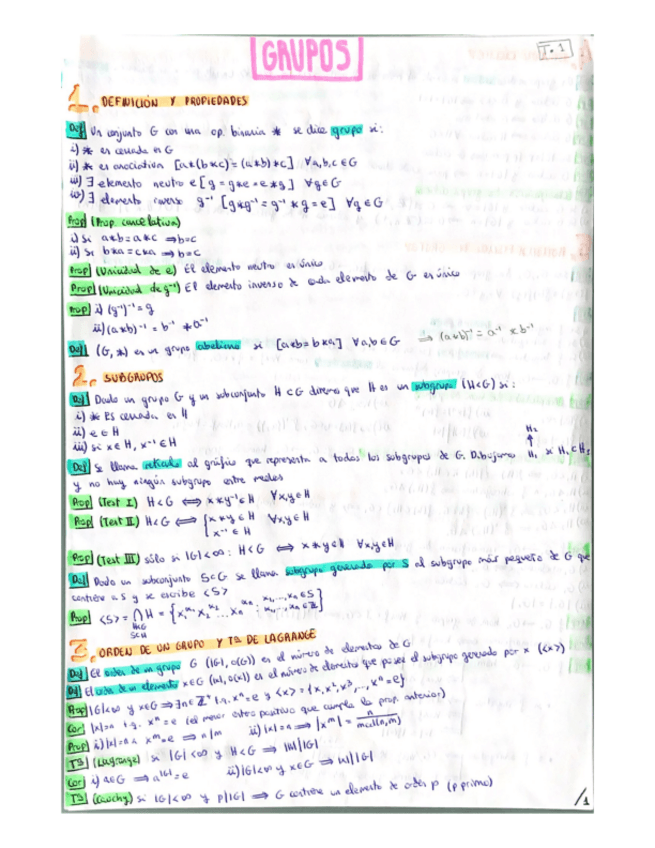 GRUPOS
T.1
1. DEFINICIÓN Y PROPIEDADES
Def Un conjunto G con una op. binaria * se dice grupo si:
i) * es cerrada en G
ii) * es asociativa [a*(b*c)=(a*b)*c] ∀a,b,c∈G
iii) ∃ elemento neutro e [g=g*e=e*g] ∀g∈G
iv) ∃ elemento inverso g⁻¹ [g*g⁻¹=g⁻¹*g=e] ∀g∈G
Prop (Prop. cancelativa)
i) Si a*b=a*c ⇒ b=c
ii) Si b*a=c*a ⇒ b=c
Prop (Unicidad de e) El elemento neutro es único
Prop (Unicidad de g⁻¹) El elemento inverso de cada elemento de G es único
Prop i) (g⁻¹)⁻¹=g
ii) (a*b)⁻¹ = b⁻¹ * a⁻¹
Def (G,*) es un grupo abeliano si [a*b=b*a] ∀a,b∈G ⇒ (a*b)⁻¹=a⁻¹*b⁻¹
2. SUBGRUPOS
Def Dado un grupo G y un subconjunto H⊂G diremos que H es un subgrupo (H<G) si:
i) * es cerrada en H
ii) e∈H
iii) si x∈H, x⁻¹∈H
Def Se llama retículo al gráfico que representa a todos los subgrupos de G. Dibujamos H₁ ↑ H₂ si H₁⊂H₂
y no hay ningún subgrupo entre medias
Prop (Test I) H<G ⟺ x*y⁻¹∈H ∀x,y∈H
Prop (Test II) H<G ⟺ { x*y∈H ∀x,y∈H
x⁻¹∈H
Prop (Test III) sólo si |G|<∞: H<G ⟺ x*y∈H ∀x,y∈H
Def Dado un subconjunto S⊂G se llama subgrupo generado por S al subgrupo más pequeño de G que
contiene a S y se escribe <S>
Prop <S> = ⋂ H =
H<G
S⊂H
3. ORDEN DE UN GRUPO Y Tª DE LAGRANGE
Def El orden de un grupo G (|G|, o(G)) es el número de elementos de G
Def El orden de un elemento x∈G (|x|, o(x)) es el número de elementos que posee el subgrupo generado por x (<x>)
Prop |G|<∞ y x∈G ⇒ ∃n∈ℤ⁺ t.q. xⁿ=e y <x>={x, x², x³, ..., xⁿ=e}
Cor |x|=n t.q. xⁿ=e (el menor entero positivo que cumpla la prop. anterior)
Prop i) |x|=n xᵐ=e ⇒ n|m ii) |x|=n ⇒ |xᵐ| = n/mcd(n,m)
Tª (Lagrange) si |G|<∞ y H<G ⇒ |H| | |G|
Cor i) a∈G ⇒ a^|G|=e ii) |G|<∞ y x∈G ⇒ |x| | |G|
Tª (Cauchy) si |G|<∞ y p | |G| ⇒ G contiene un elemento de orden p (p primo)
/1